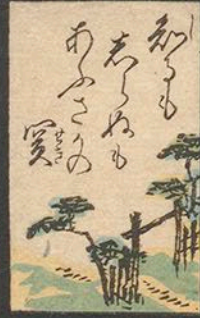 知るも
しらぬも
あふさかの
関